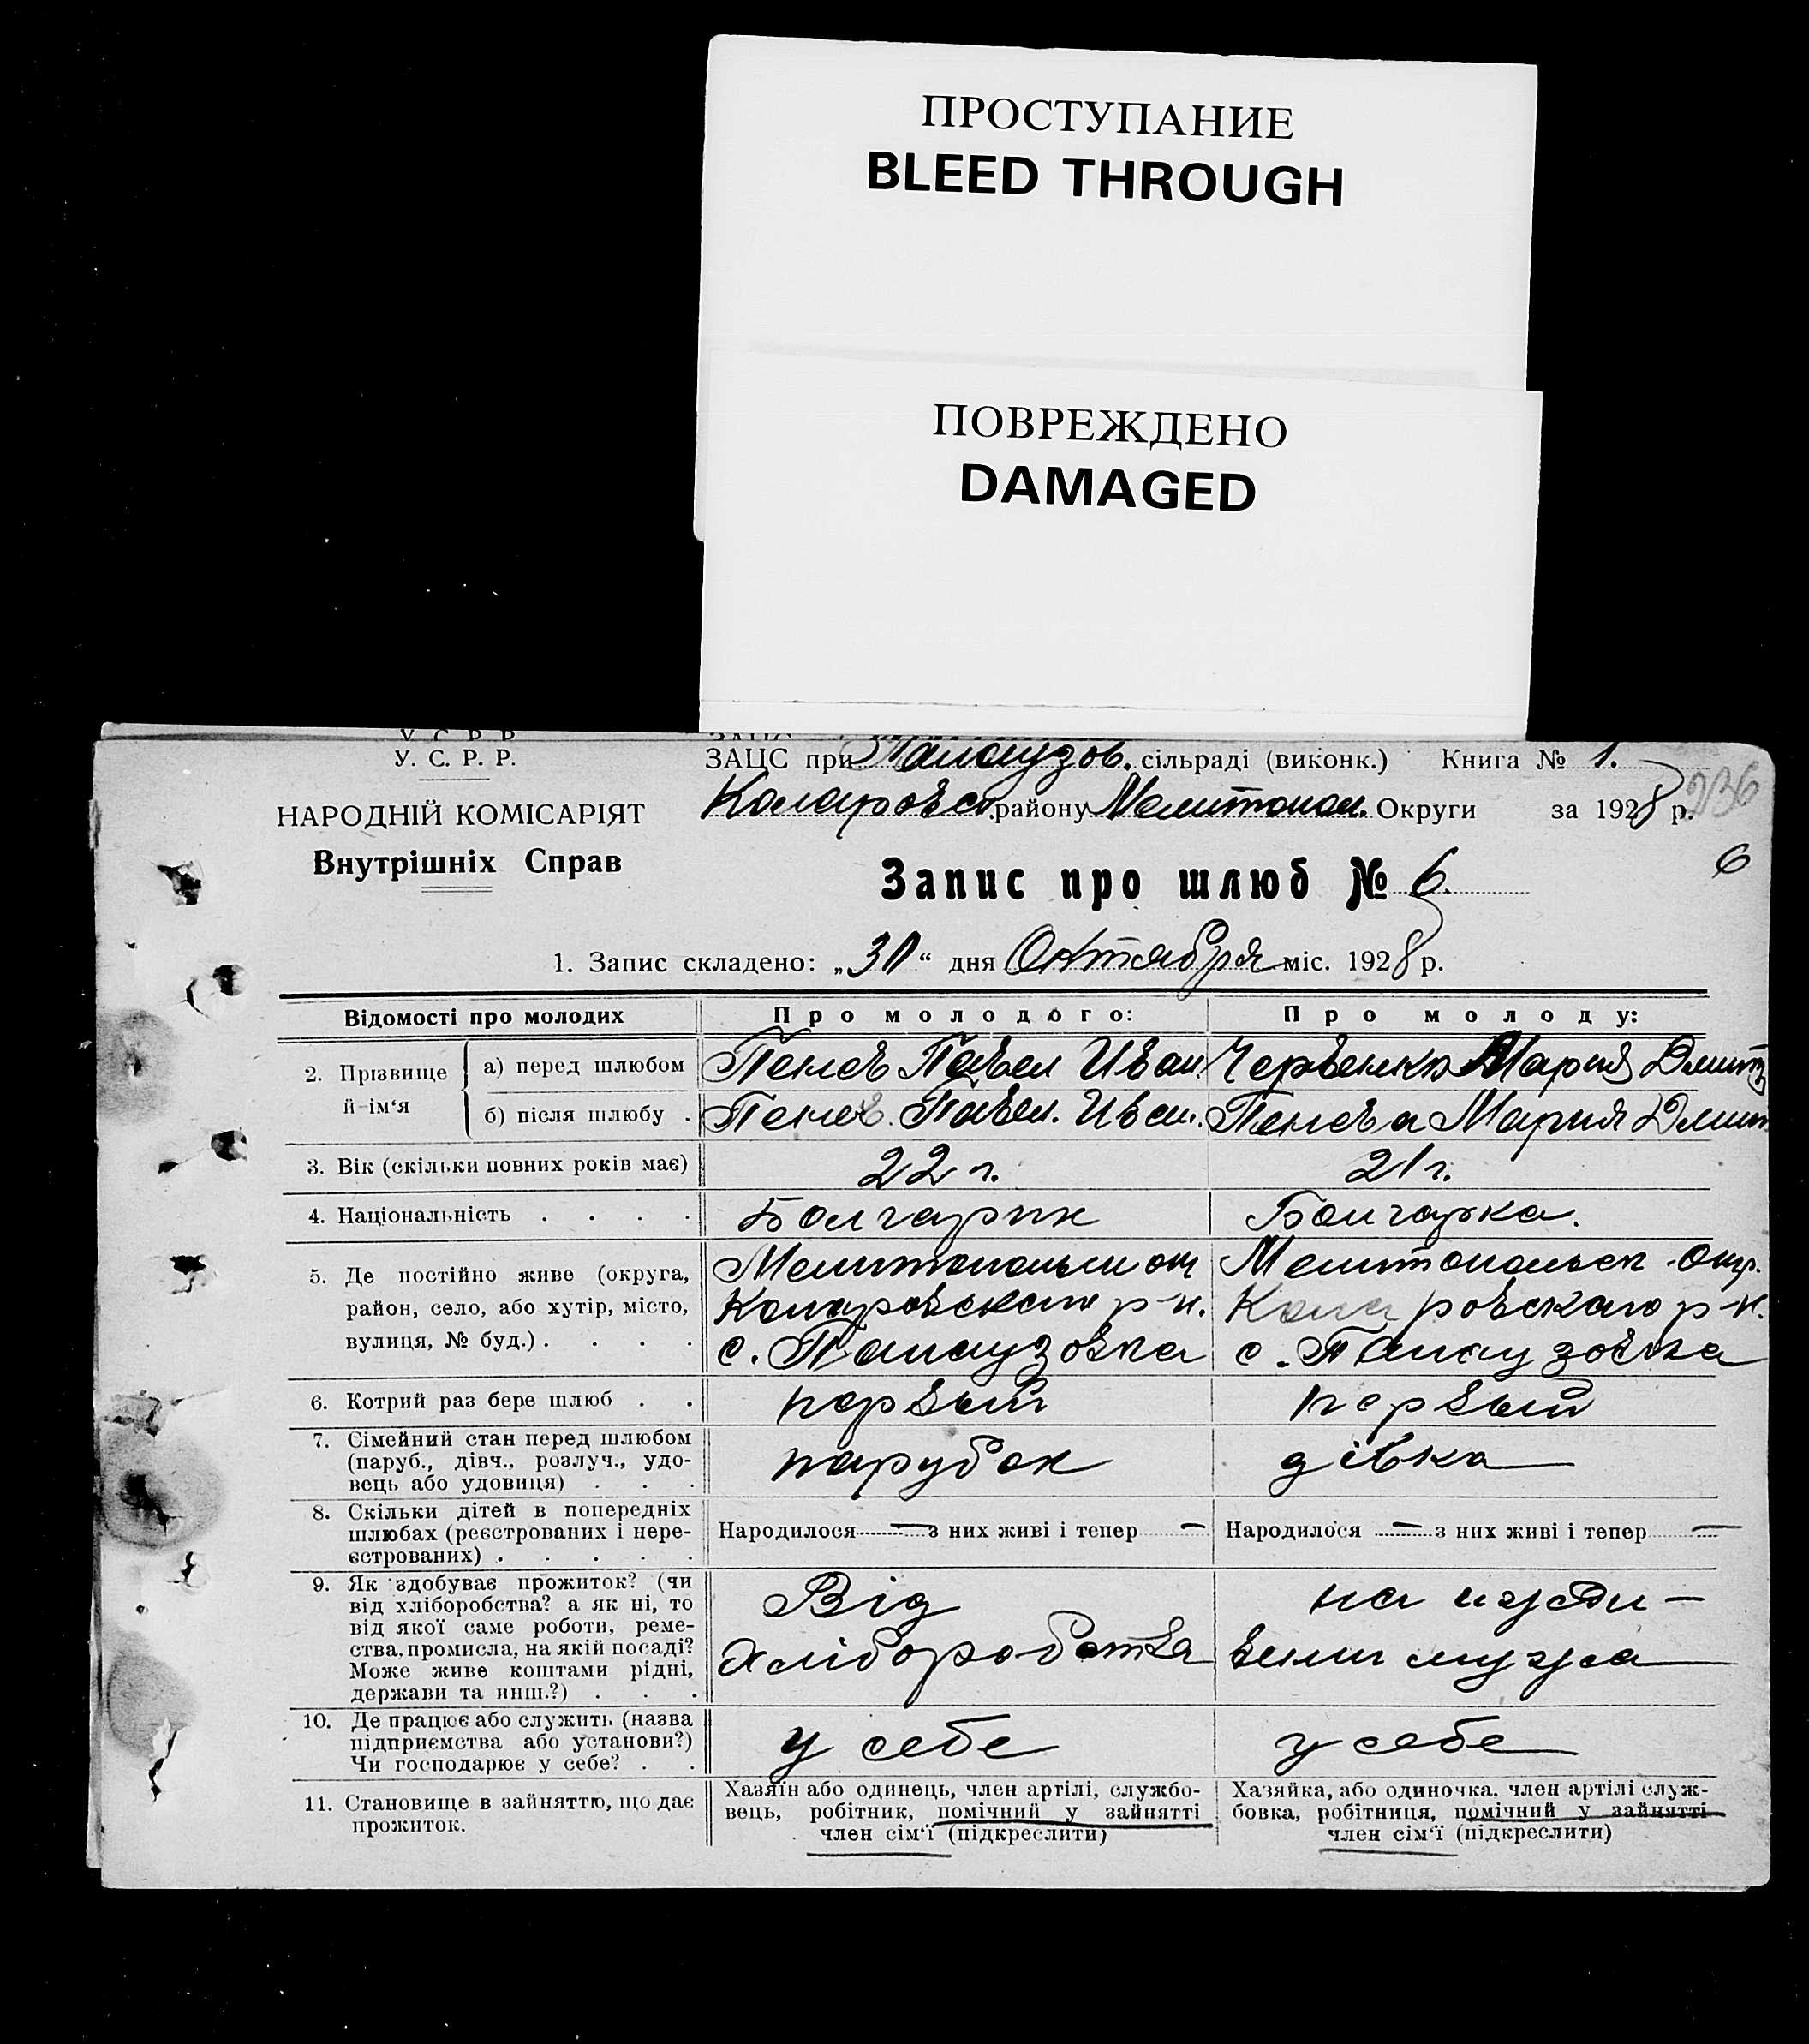 ПРОСТУПАНИЕ
BLEED THROUGH
ПОВРЕЖДЕНО
DAMAGED
У. С. Р. Р.
ЗАЦС при Палаузов. сільраді (виконк.) Книга № 1.
236
НАРОДНІЙ КОМІСАРІЯТ
Коларовск. району Мелитопол. Округи за 1928 р.
Внутрішніх Справ
Запис про шлюб № 6.
6
1. Запис складено: „30“ дня Октября міс. 1928 р.
Відомості про молодих Про молодого: Про молоду:
2. Прізвище й ім‘я
а) перед шлюбом Пенев Павел Иван. Червенко Мария Дмит
б) після шлюбу . Пенев. Павел. Иван. Пенева Мария Дмит
3. Вік (скільки повних років має) 22 г. 21 г.
4. Національність . . . . Болгарин Болгарка.
5. Де постійно живе (округа, район, село, або хутір, місто, вулиця, № буд.) . . . .
Мелитопольск окр
Коларовского р-н.
с. Палаузовка
Мелитопольск . окр.
Коларовского р-н.
с. Палаузовка
6. Котрий раз бере шлюб . . первый первый
7. Сімейний стан перед шлюбом
(паруб., дівч., розлуч., удо-
вець або удовиця) . . .
парубок дівка
8. Скільки дітей в попередніх
шлюбах (реєстрованих і нере-
єстрованих) . . . . .
Народилося — з них живі і тепер — Народилося — з них живі і тепер —
9. Як здобуває прожиток? (чи
від хліборобства? а як ні, то
від якої саме роботи, реме-
ства, промисла, на якій посаді?
Може живе коштами рідні,
держави та инш.?) . . .
Від
хліборобства
на ижди-
вении мужа
10. Де працює або служить (назва
підприємства або установи?)
Чи господарює у себе? . .
у себе у себе
11. Становище в зайняттю, що дає
прожиток.
Хазяїн або одинець, член артілі, службо-
вець, робітник, помічний у зайнятті
член сім‘ї (підкреслити)
Хазяйка, або одиночка, член артілі служ-
бовка, робітниця, помічний у зайнятті
член сім‘ї (підкреслити)